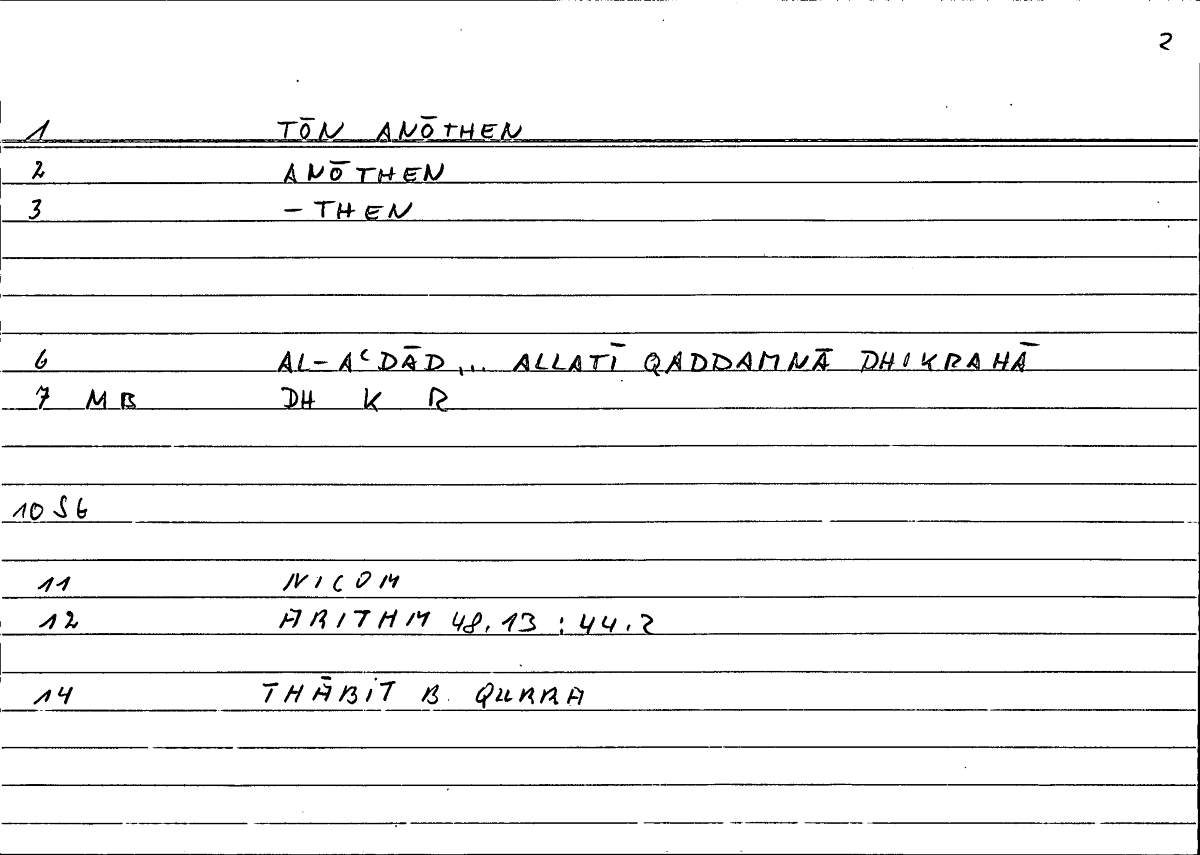 2
1 TŌN ANŌTHEN
2 ANŌTHEN
3 -THEN
6 AL-AʿDĀD... ALLATĪ QADDAMNĀ DHIKRAHĀ
7 MB DH K R
10 SG
11 NICOM
12 ARITHM 48.13 : 44.2
14 THĀBIT B. QURRA